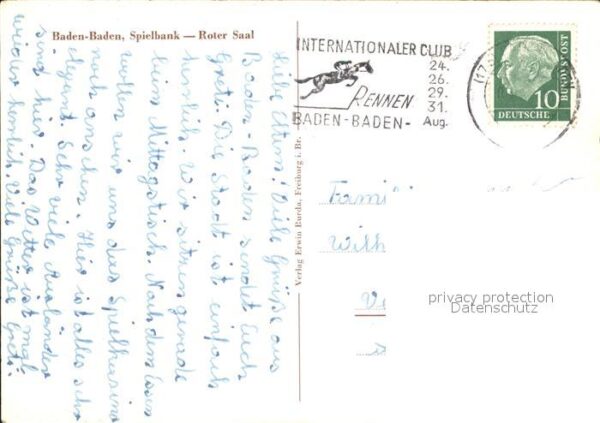 Baden-Baden, Spielbank — Roter Saal
Liebe Eltern! Viele Grüße aus
Baden-Baden sendet Euch
Gretl. Die Stadt ist einfach
herrlich. Wir sitzen gerade
beim Mittagstisch. Nach dem Essen
wollen wir uns das Spielkasino
noch anschen. Hier ist alles sehr
elegant. Sehr viele Ausländer
sind hier. Das Wetter ist
wieder herrlich. Viele Grüße Gretl.
Verlag Erwin Burda, Freiburg i. Br.
INTERNATIONALER CLUB
24.
26.
29.
31.
Aug.
RENNEN
BADEN-BADEN-
10
DEUTSCHE
BUNDESPOST
Fami
Wilh
privacy protection
Datenschutz